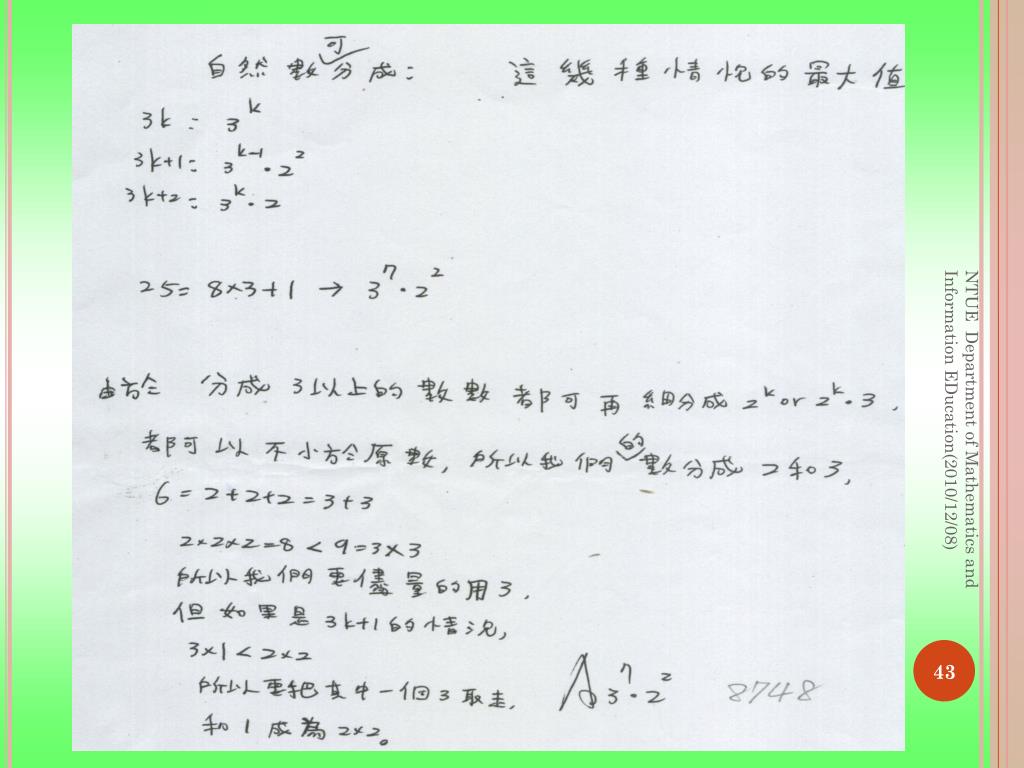 自然數可分成: 這幾種情況的最大值
3k: 3^k
3k+1: 3^(k-1)·2^2
3k+2: 3^k·2
25=8×3+1 → 3^7·2^2
由於 分成3以上的數數都可再細分成2^k or 2^k·3.
都可以不小於原數,所以我們的數分成2和3,
6=2+2+2=3+3
2×2×2=8<9=3×3
所以我們要儘量的用3.
但如果是3k+1的情況,
3×1<2×2
所以要把其中一個3取走,
和1成為2×2。
A 3^7·2^2 8748
NTUE Department of Mathematics and
Information EDucation(2010/12/08)
43